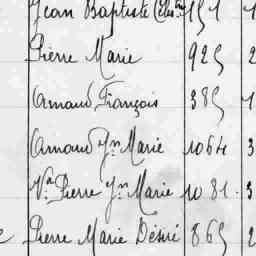 Jean Baptiste
Pierre Marie 925 2
Arnaud, François 385 1
Arnaud Jn Marie 1064 3
Vve Pierre Jn Marie 1081 3
Pierre Marie Désiré 865 2